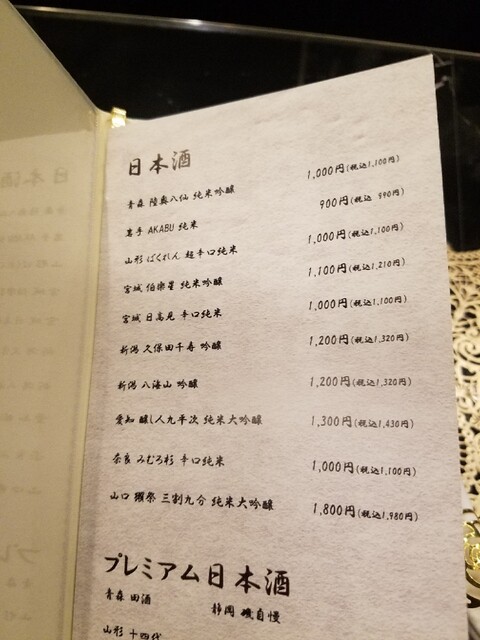 日本酒
青森 陸奥八仙 純米吟醸 1,000円(税込1,100円)
岩手 AKABU 純米 900円(税込 990円)
山形 ばくれん 超辛口純米 1,000円(税込1,100円)
宮城 伯楽星 純米吟醸 1,100円(税込1,210円)
宮城 日高見 辛口純米 1,000円(税込1,100円)
新潟 久保田千寿 吟醸 1,200円(税込1,320円)
新潟 八海山 吟醸 1,200円(税込1,320円)
愛知 醸し人九平次 純米大吟醸 1,300円(税込1,430円)
奈良 みむろ杉 辛口純米 1,000円(税込1,100円)
山口 獺祭 三割九分 純米大吟醸 1,800円(税込1,980円)
プレミアム日本酒
青森 田酒 静岡 磯自慢
山形 十四代